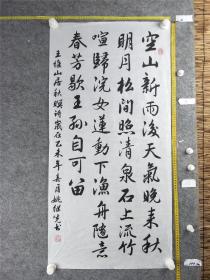 空山新雨後天氣晚来秋
明月松間照清泉石上流竹
喧歸浣女蓮動下漁舟隨意
春芳歇王孫自可留
王維山居秋暝詩歲在乙未年月姚書